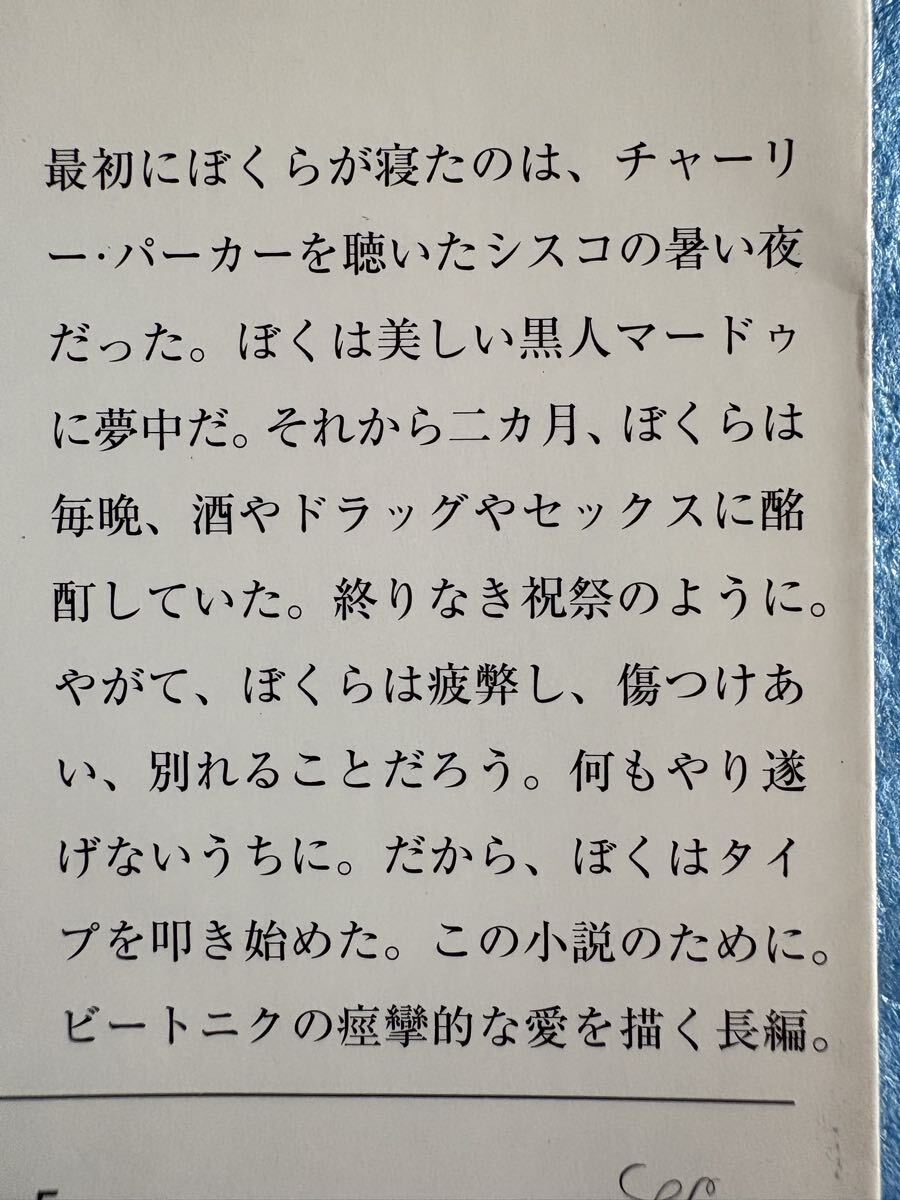 最初にぼくらが寝たのは、チャーリ
ー・パーカーを聴いたシスコの暑い夜
だった。ぼくは美しい黒人マードゥ
に夢中だ。それから二カ月、ぼくらは
毎晩、酒やドラッグやセックスに酩
酊していた。終りなき祝祭のように。
やがて、ぼくらは疲弊し、傷つけあ
い、別れることだろう。何もやり遂
げないうちに。だから、ぼくはタイ
プを叩き始めた。この小説のために。
ビートニクの痙攣的な愛を描く長編。